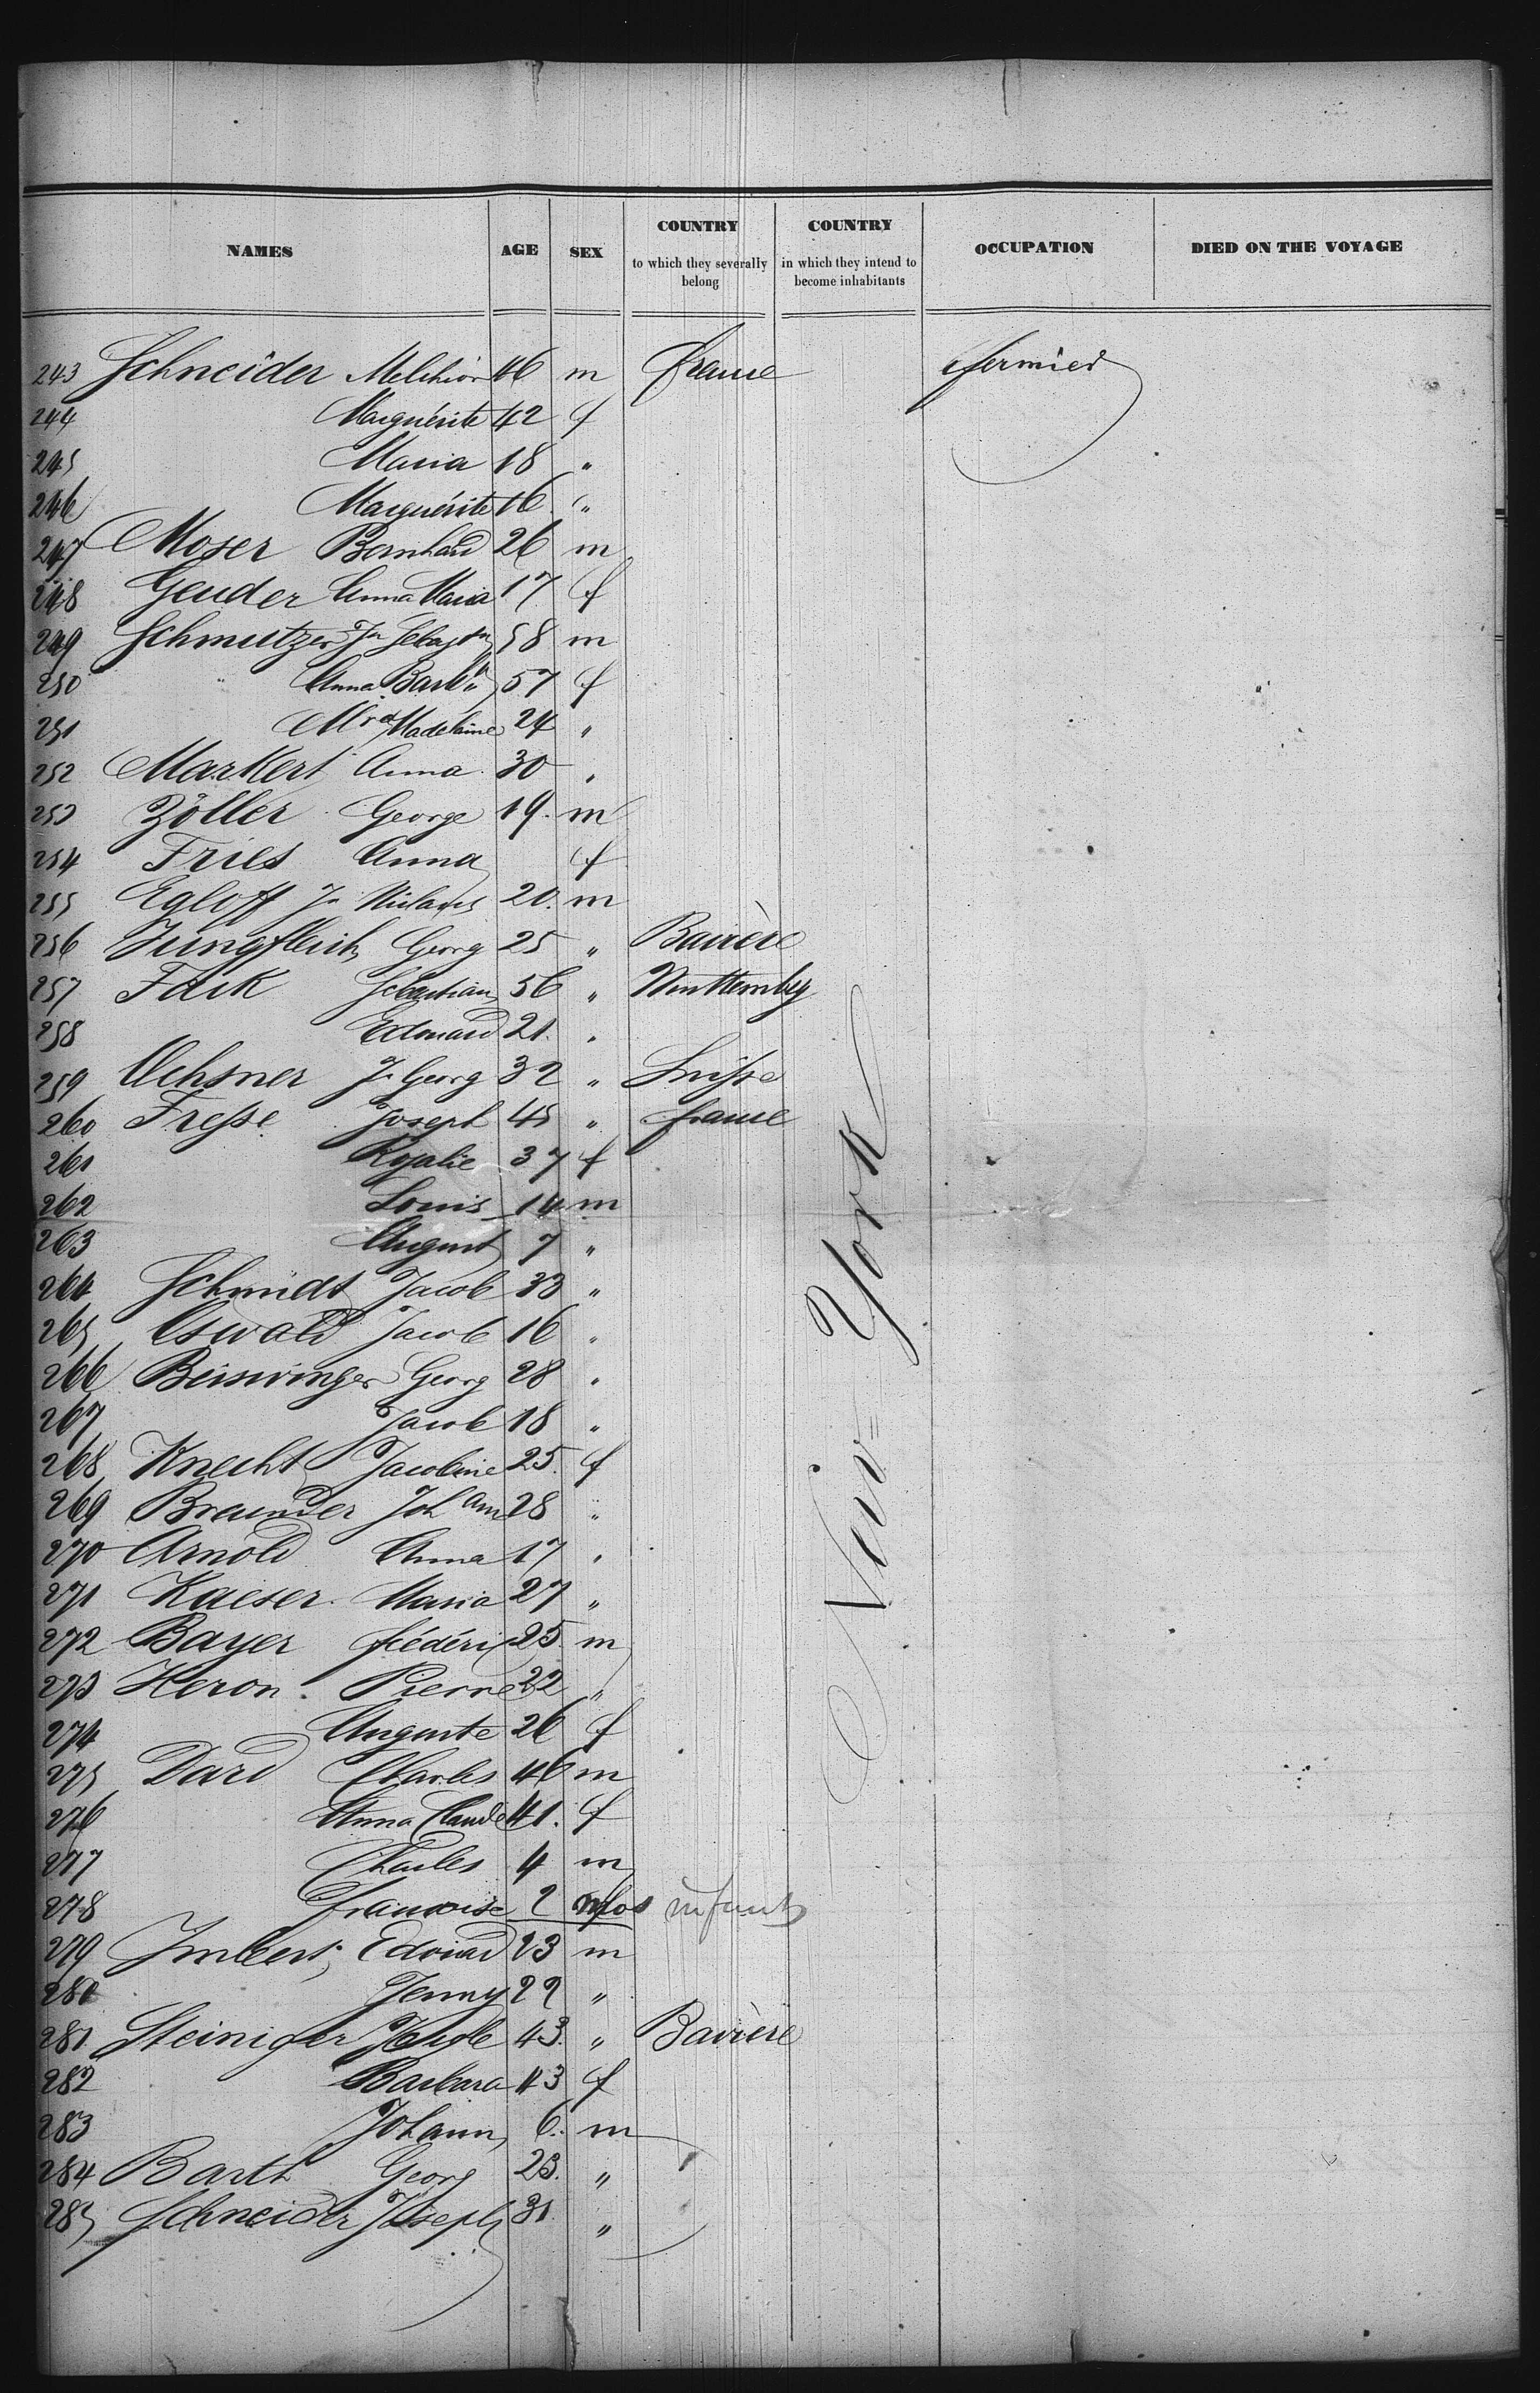 NAMES AGE SEX COUNTRY to which they severally belong COUNTRY in which they intend to become inhabitants OCCUPATION DIED ON THE VOYAGE
243 Schneider Melchior 46 m france fermier
244 Marguérite 42 f
245 Maria 18 "
246 Marguérite 16 "
247 Moser Bernhard 26 m
248 Geuder Anna Maria 17 f
249 Schmutzer Jn Sebastn 58 m
250 " Anna Barb 57 f
251 Madelaine 24 "
252 Markert Anna 30 "
253 Zöller George 19 m
254 Fries Anna f
255 Egloff Jn Niclaus 20 m
256 Jungfleich Georg 25 " Bavière
257 Faik Sebastian 56 " Wurttemberg
258 Edouard 21 "
259 Ochsner Jn Georg 32 " Suisse
260 Fresse Joseph 45 " france
261 Rosalie 37 f
262 Louis 14 m
263 August 7 "
264 Schmidt Jacob 33 "
265 Oswald Jacob 16 "
266 Beiswinger Georg 28 "
267 Jacob 18 "
268 Knecht Jacobine 25 f
269 Braunder Joh Ann 28 "
270 Arnold Anna 17 "
271 Kaeser Maria 27 "
272 Bayer frédéric 25 m
273 Heron Pierre 22 "
274 Auguste 26 f
275 Dard Charles 46 m
276 Anna Claude 41 f
277 Charles 4 m
278 francoise 2 infants
279 Imbert Edouard 23 m
280 Jenny 22 "
281 Steiniger 43 " Bavière
282 Barbara 43 f
283 Johann 6 m
284 Barth Georg 23 "
285 Schneider Joseph 31 "
New-York